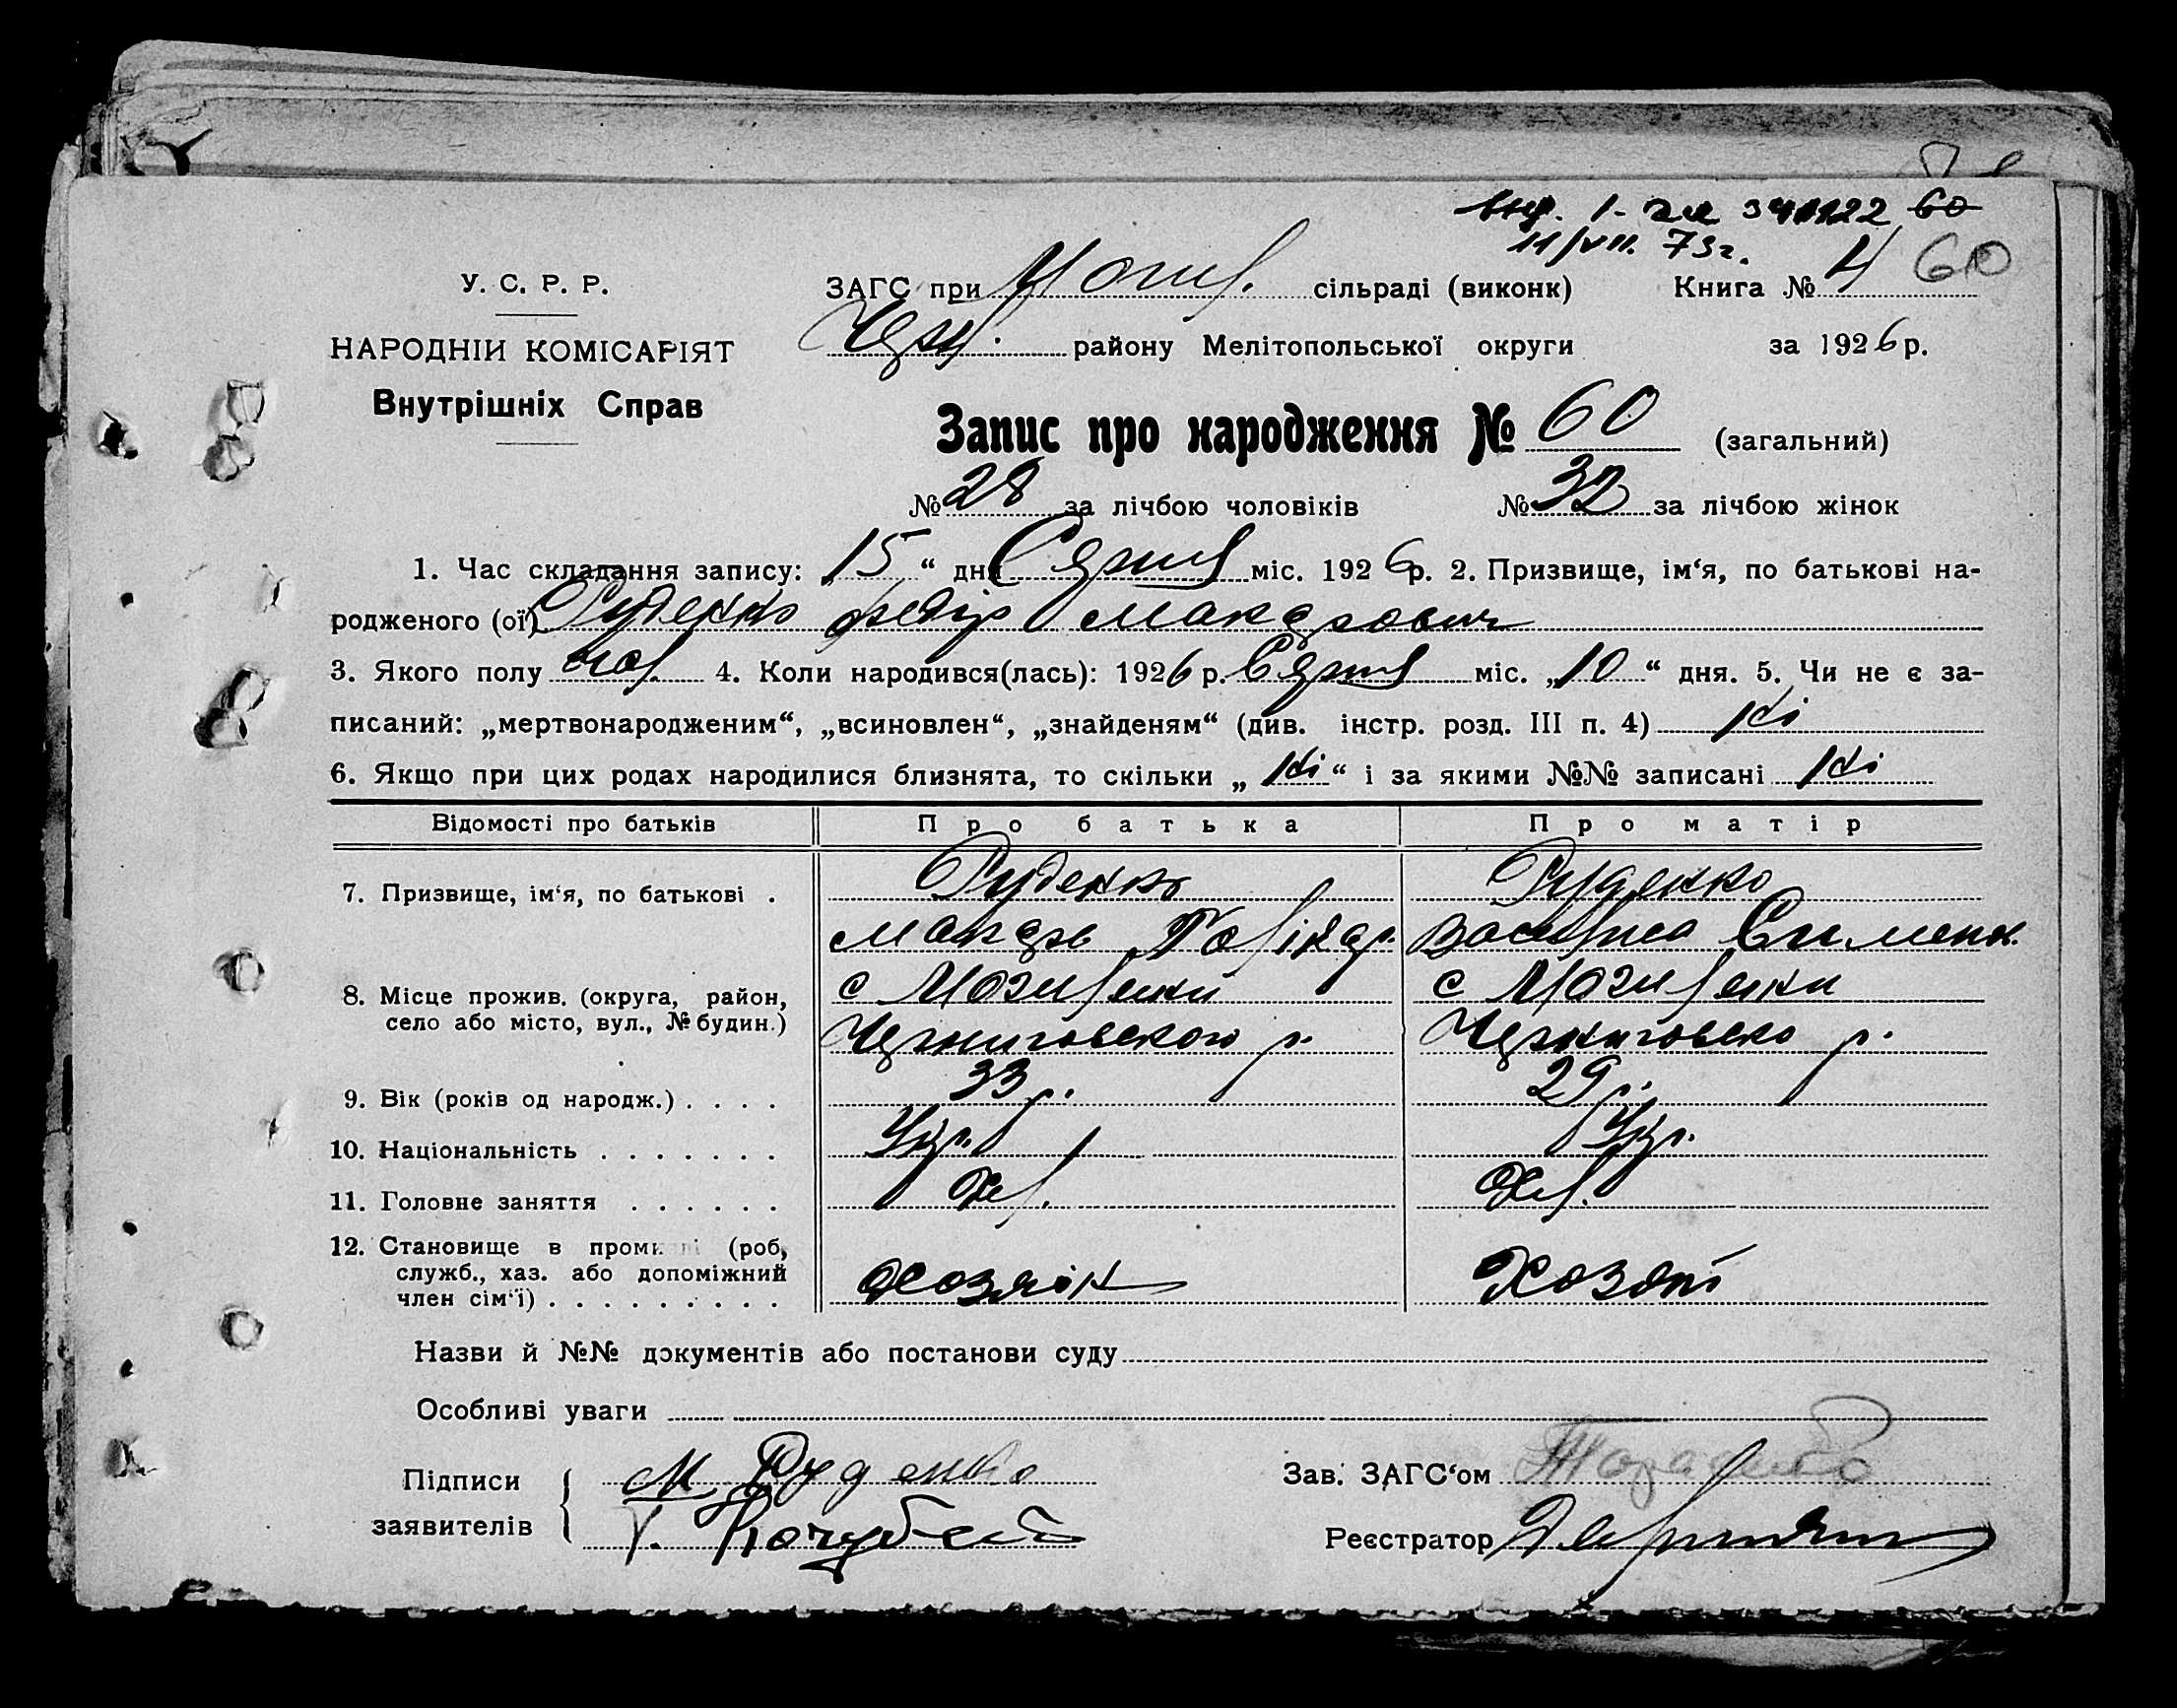 11/VII. 73г. 60
У. С. Р. Р.
ЗАГС при Могил. сільраді (виконк) Книга № 4 60
НАРОДНІЙ КОМІСАРІЯТ
Черн. району Мелітопольської округи за 1926 р.
Внутрішніх Справ
Запис про народження № 60 (загальний)
№ 28 за лічбою чоловіків № 32 за лічбою жінок
1. Час складання запису: „15“ дня Серпня міс. 1926 р. 2. Призвище, ім‘я, по батькові на-
родженого (ої) Руденко Федір Макарович
3. Якого полу чол. 4. Коли народився(лась): 1926 р. Серпня міс. „10“ дня. 5. Чи не є за-
писаний: „мертвонародженим“, „всиновлен“, „знайденям“ (див. інстр. розд. III п. 4) Ні
6. Якщо при цих родах народилися близнята, то скільки „Ні“ і за якими №№ записані Ні
Відомості про батьків Про батька Про матір
7. Призвище, ім‘я, по батькові . Руденко Руденко
Макарь Василиса Симеон.
8. Місце прожив. (округа, район, село або місто, вул., № будин.) с Могилянки с Могилянки
Черниговского р. Черниговско р.
9. Вік (років од народж.) . . . . 33 р. 29 р.
10. Національність . . . . . . . Укр. Укр.
11. Головне заняття . . . . . . Хл. Хл.
12. Становище в пром (роб,
служб., хаз. або допоміжний
член сім‘ї) . . . . . . . . . Хозяїн
Назви й №№ документів або постанови суду
Особливі уваги
Підписи М Руденко Зав. ЗАГС‘ом
заявителів Г. Кочубей Реєстратор